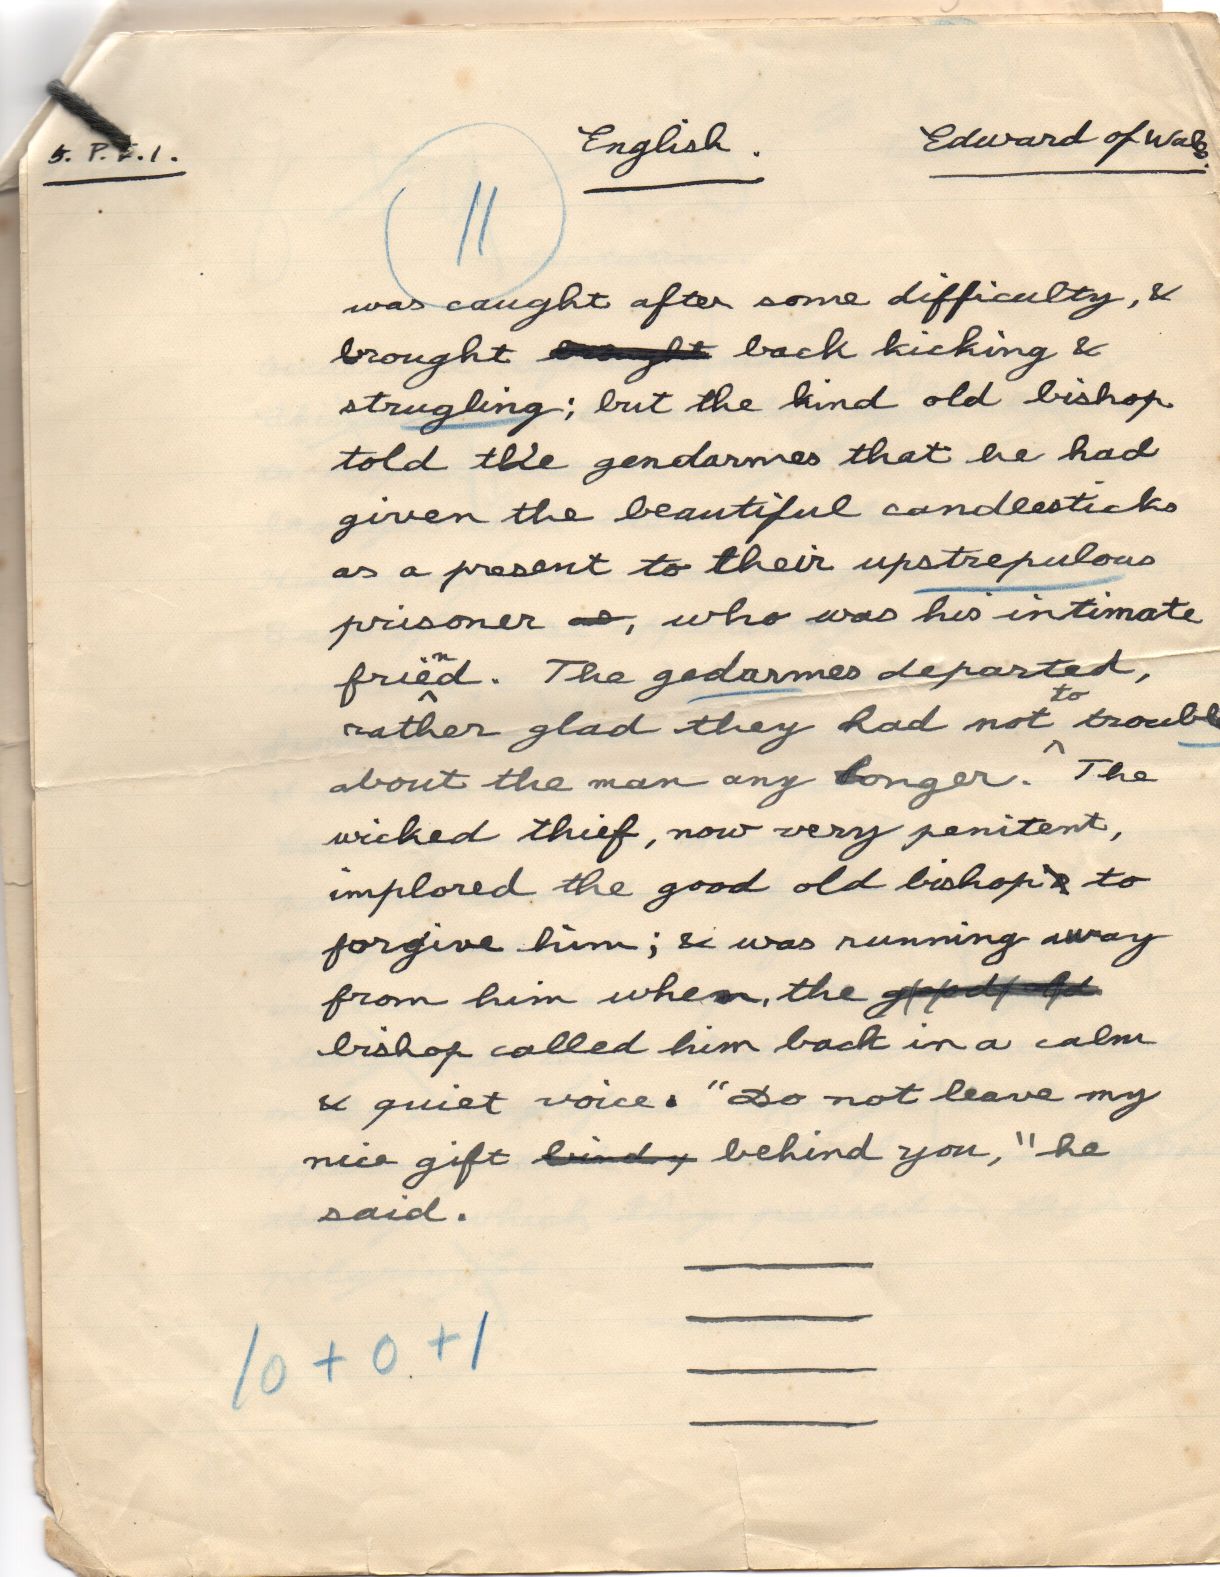 5. P. E. 1.
English.
Edward of Wales.
11
was caught after some difficulty, &
brought brought back kicking &
strugling; but the kind old bishop
told the gendarmes that he had
given the beautiful candlesticks
as a present to their upstrepulous
prisoner as, who was his intimate
friend. The gedarmes departed,
rather glad they had not to trouble
about the man any longer. The
wicked thief, now very penitent,
implored the good old bishop to
forgive him; & was running away
from him when, the good old
bishop called him back in a calm
& quiet voice. "Do not leave my
nice gift behind you," he
said.
10 + 0 + 1